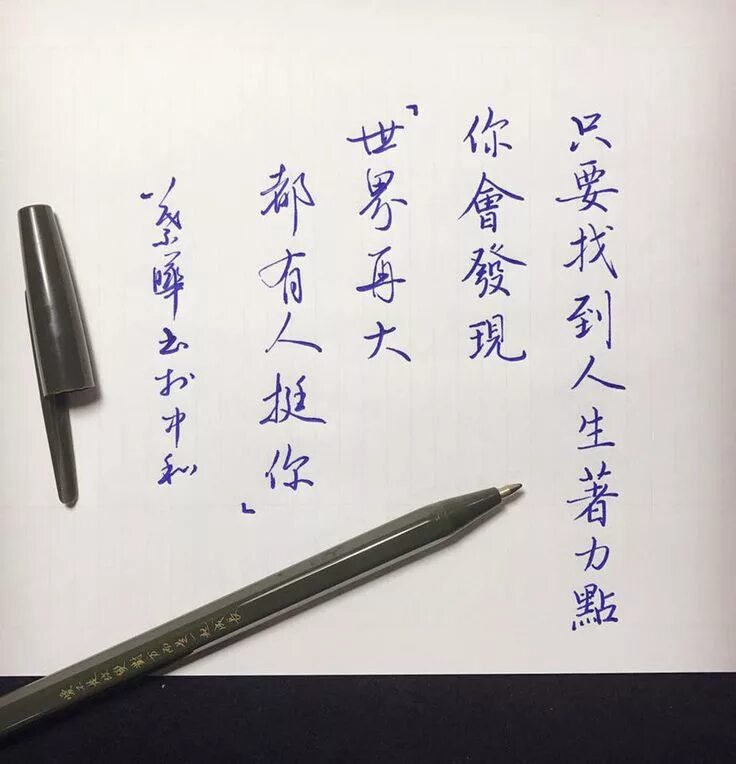 只要找到人生著力點
你會發現
「世界再大
都有人挺你」
葉曄書於中和